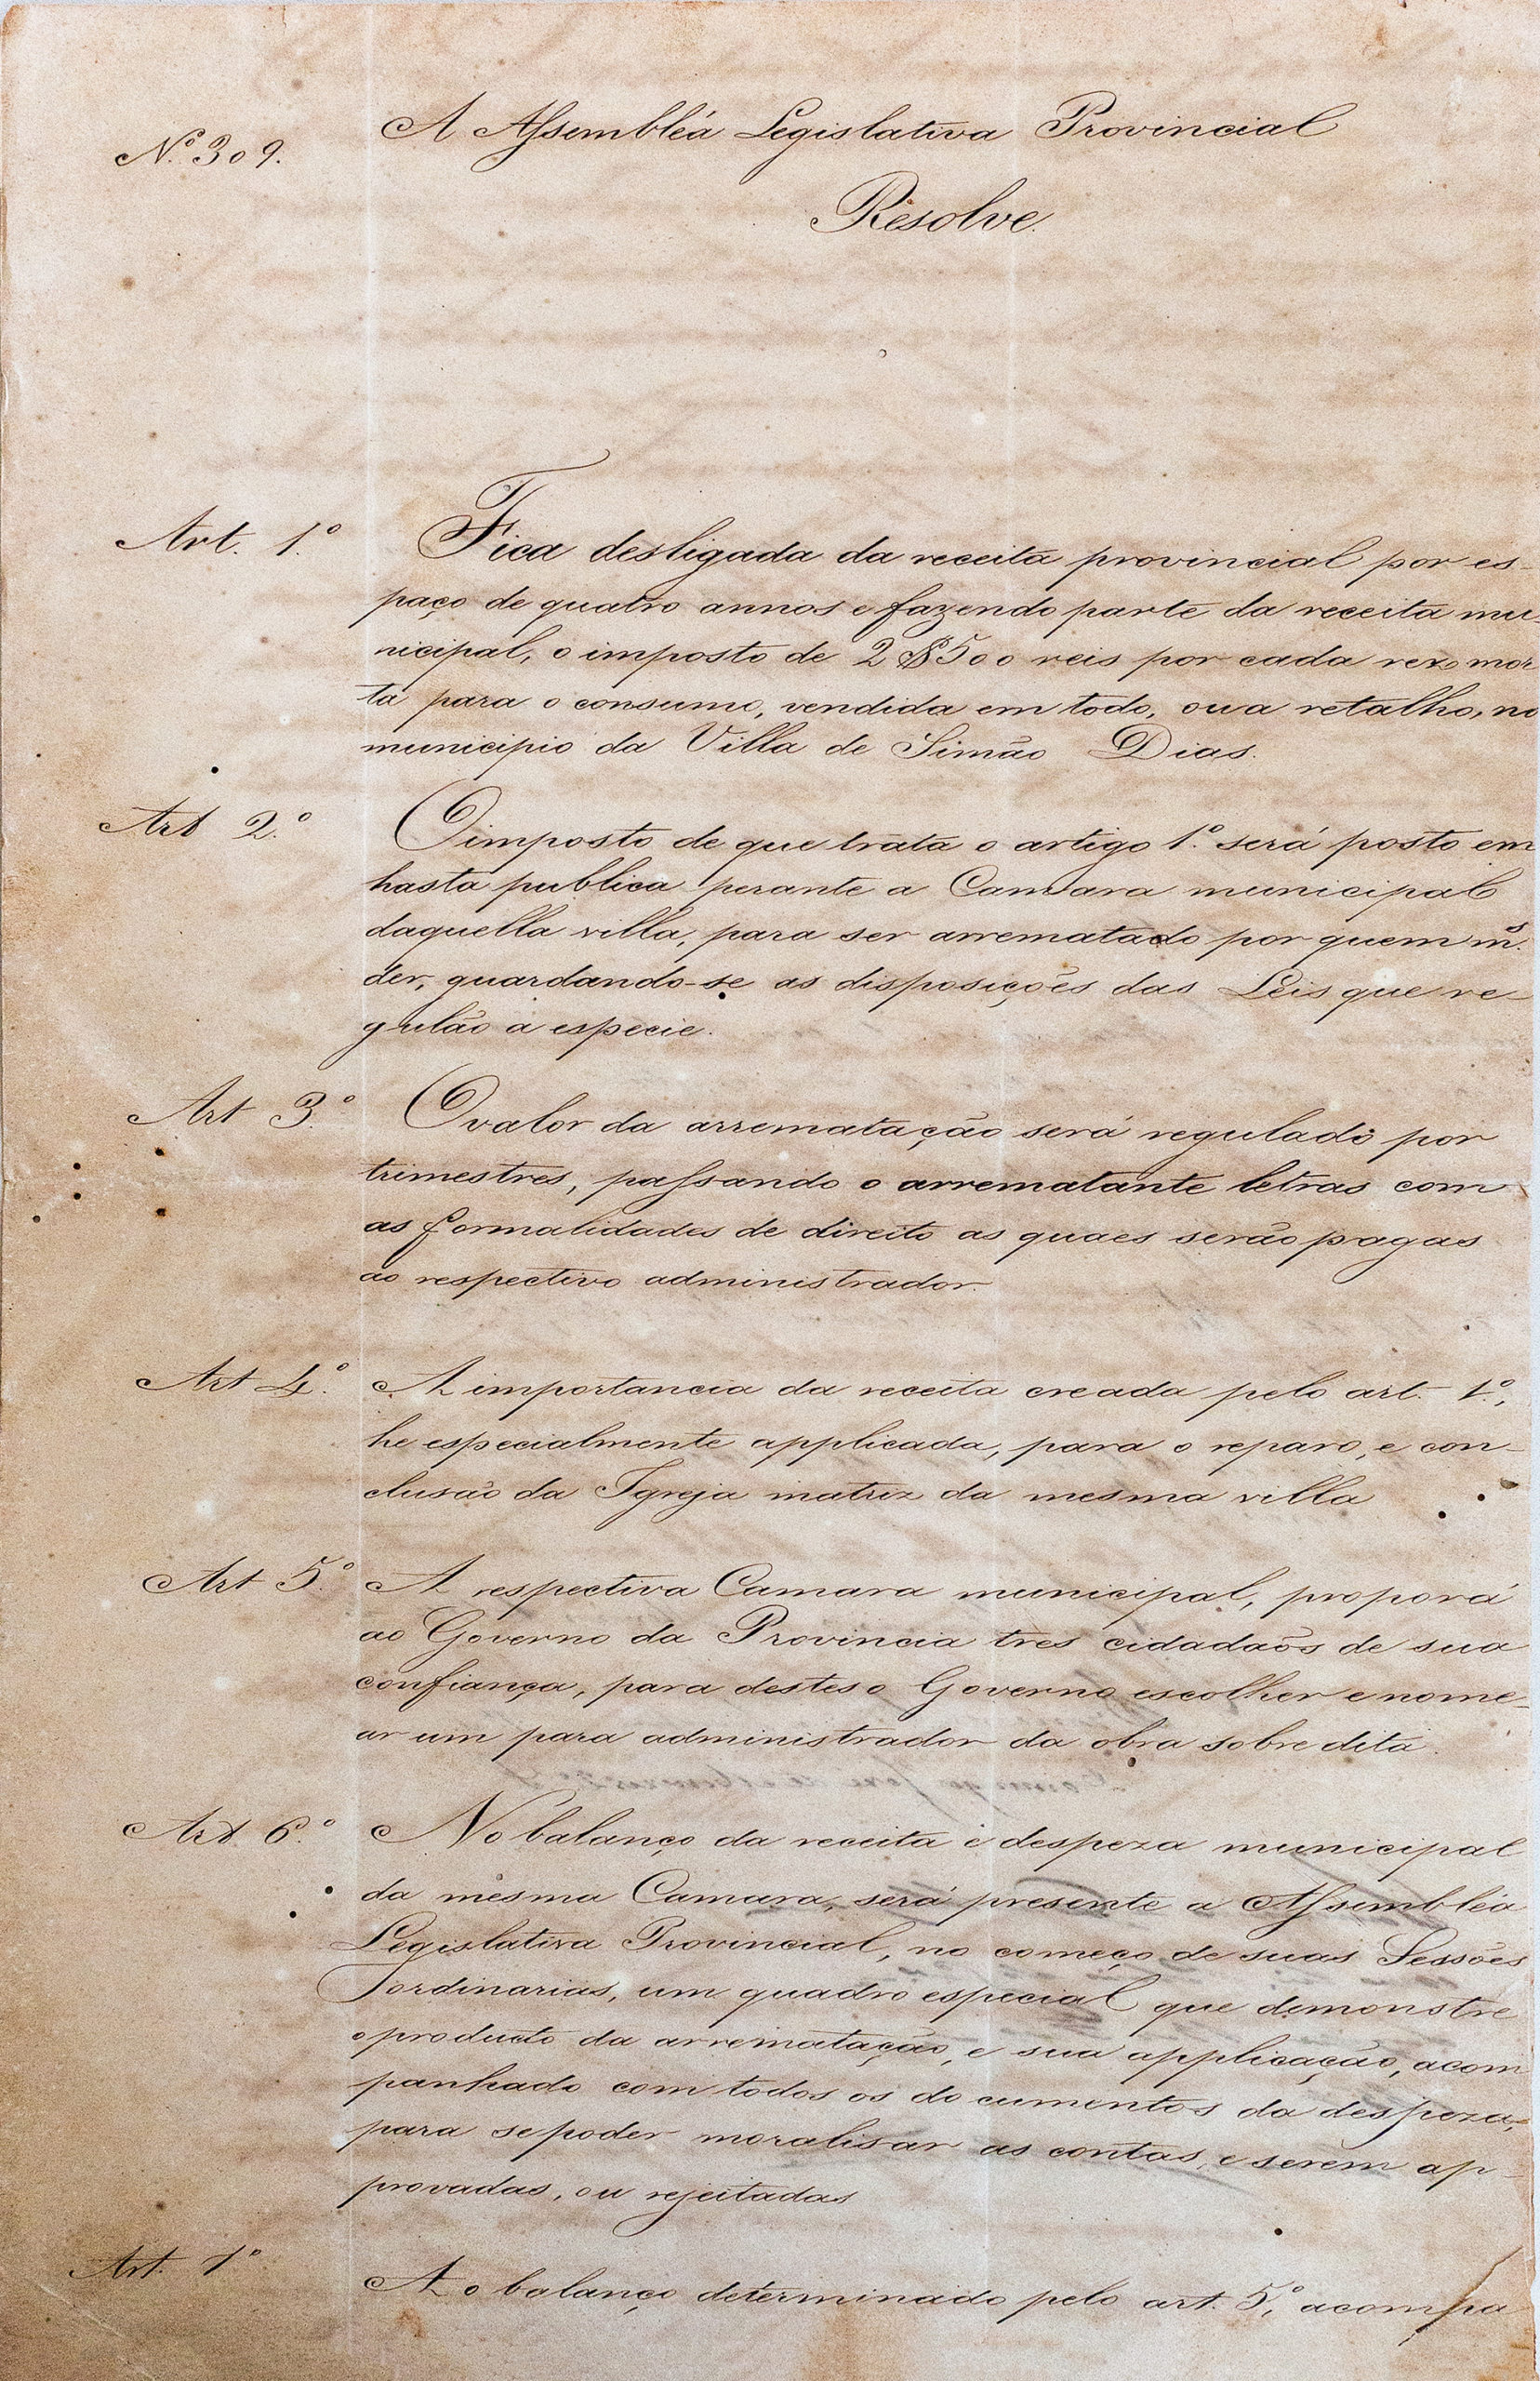 Nº 309.
A Assembléa Legislativa Provincial
Resolve.
Art. 1.º
Fica desligada da receita provincial por es-
paço de quatro annos e fazendo parte da receita mu-
nicipal, o imposto de 2$500 reis por cada rez mor
ta para o consumo, vendida em todo, ou a retalho, no
municipio da Villa de Simão Dias.
Art 2.º
O imposto de que trata o artigo 1.º será posto em
hasta publica perante a Camara municipal
daquella villa, para ser arrematado por quem m.s
der, guardando-se as disposições das Leis que re-
gulão a especie.
Art 3.º
O valor da arrematação será regulado por
trimestres, passando o arrematante letras com
as formalidades de direito as quaes serão pagas
ao respectivo administrador.
Art 4.º
A importancia da receita creada pelo art. 1.º,
he especialmente applicada, para o reparo, e con-
clusão da Igreja matriz da mesma villa
Art 5.º
A respectiva Camara municipal, proporá
ao Governo da Provincia tres cidadaõs de sua
confiança, para destes o Governo escolher e nome-
ar um para administrador da obra sobre dita.
Art 6.º
No balanço da receita e despeza municipal
da mesma Camara, será presente a Assembléa
Legislativa Provincial, no começo de suas Sessões
ordinarias, um quadro especial que demonstre
o producto da arrematação, e sua applicação, acom
panhado com todos os documentos da despeza,
para se poder moralisar as contas, e serem ap-
provadas, ou rejeitadas
Art. 1º
Ao balanço determinado pelo art. 5.º, acompa